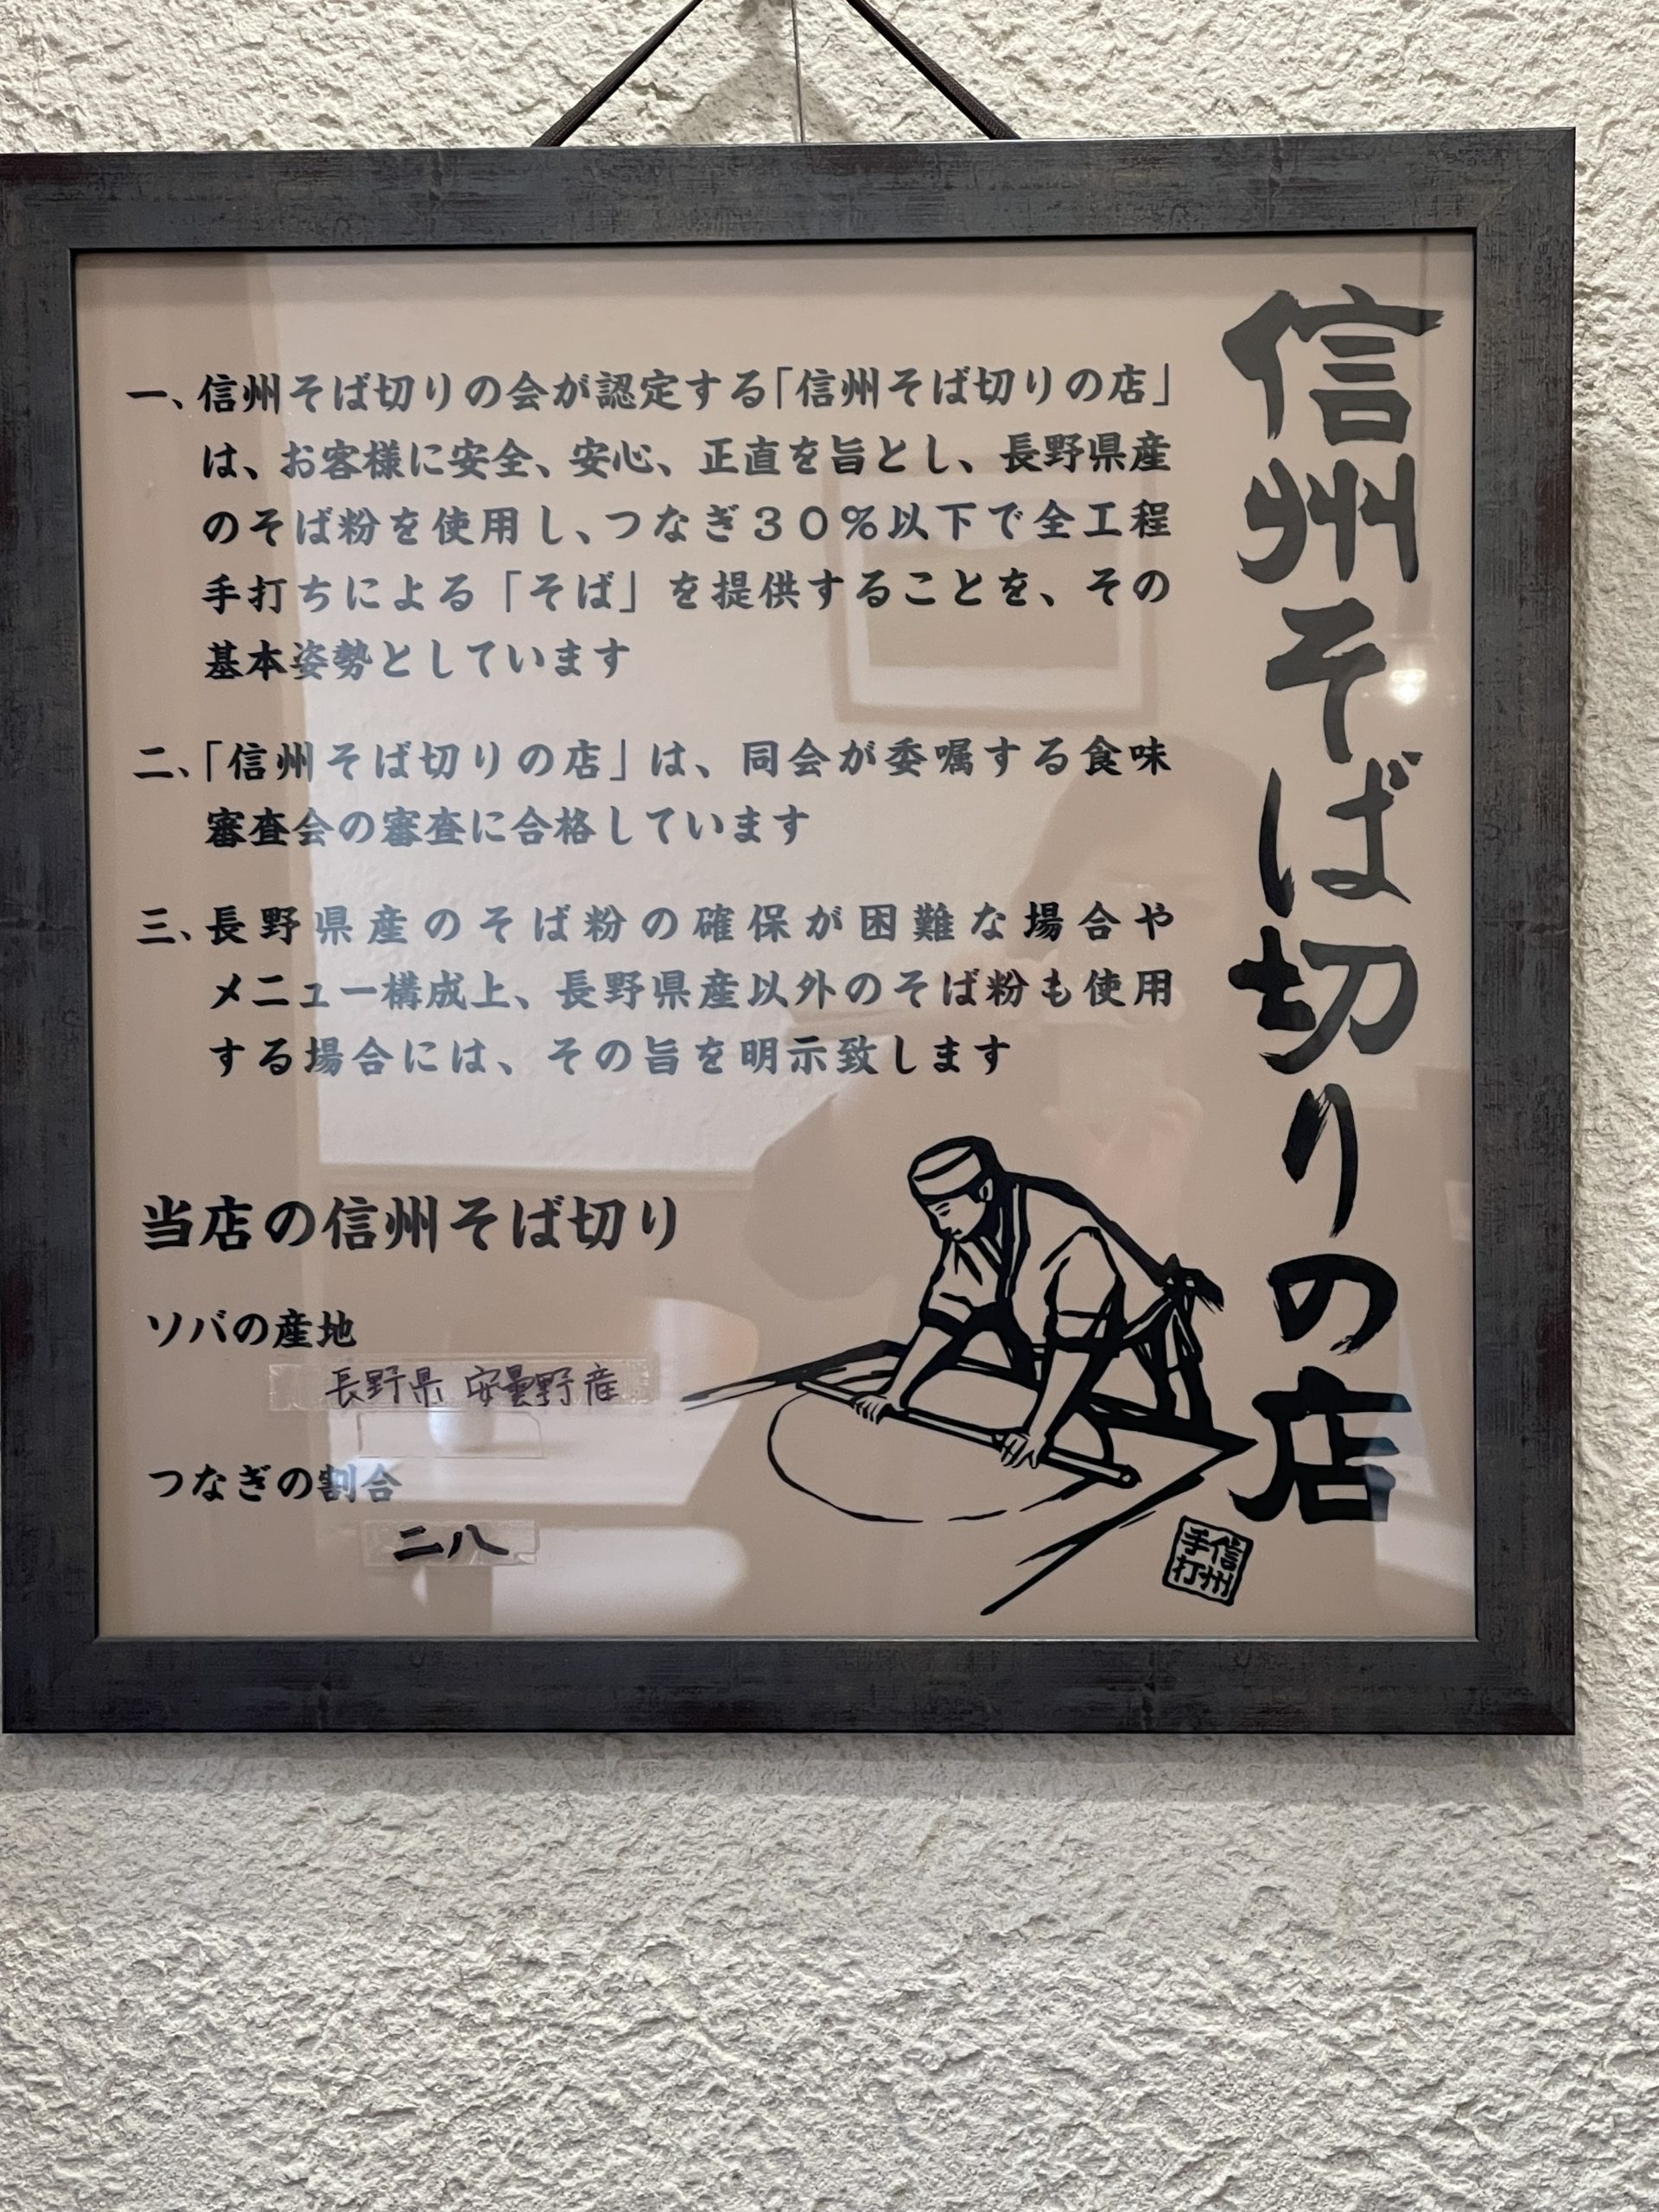 信州そば切りの店
一、信州そば切りの会が認定する「信州そば切りの店」
は、お客様に安全、安心、正直を旨とし、長野県産
のそば粉を使用し、つなぎ３０％以下で全工程
手打ちによる「そば」を提供することを、その
基本姿勢としています
二、「信州そば切りの店」は、同会が委嘱する食味
審査会の審査に合格しています
三、長野県産のそば粉の確保が困難な場合や
メニュー構成上、長野県産以外のそば粉も使用
する場合には、その旨を明示致します
当店の信州そば切り
ソバの産地
長野県 安曇野産
つなぎの割合
二八
信州
手打